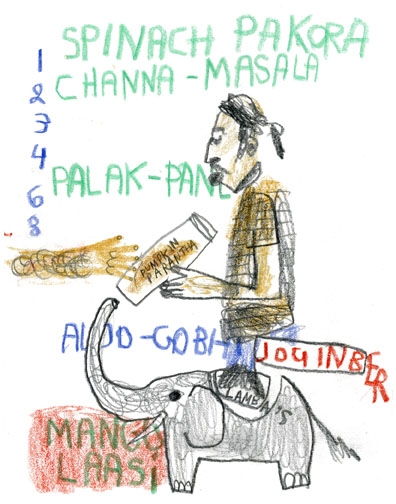 SPINACH PAKORA
1
CHANNA-MASALA
2
3
4
PALAK-PANE
6
8
PUMPKIN
PARANTHA
ALOO-GOBHI
JOGINDER
LAMBA'S
MANGO
LAASI